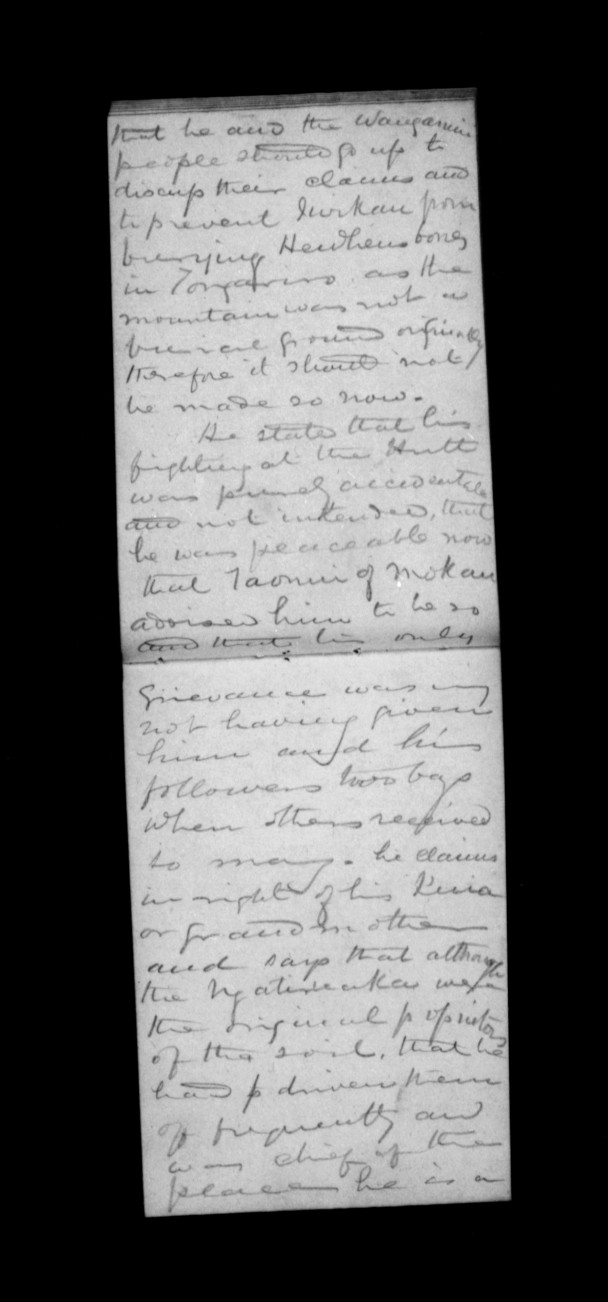 that he and the Wanganui
people should go up to
discuss their claims and
to prevent Iwikau from
burying Heuheus bones
in Tongariro as the
mountain was not a
burial ground originally
therefore it should not
be made so now.
He states that his
fighting at the Hutt
was purely accidental
and not intended, that
he was peaceable now
that Taonui of Mokau
advised him to be so
and that his only
grievance was my
not having given
him and his
followers two bags
when others received
so many. he claims
in right of his Kuia
or grandmother
and says that although
the Ngatiruaka were
the original proprietors
of the soil, that he
had driven them
off frequently and
was chief of the
place he is a